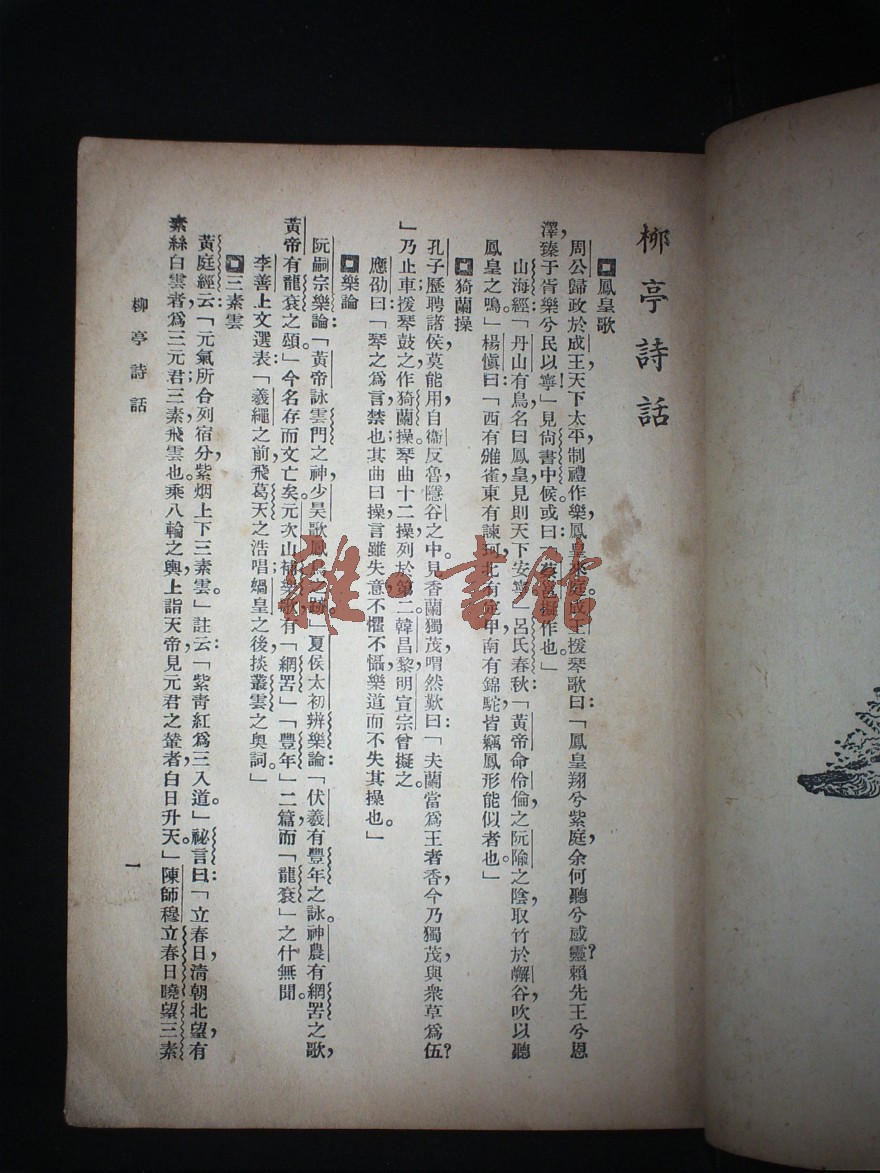 柳亭詩話
鳳皇歌
周公歸政於成王天下太平制禮作樂鳳皇來庭成王援琴歌曰：「鳳皇翔兮紫庭余何聽兮感靈賴先王兮恩
澤臻于胥樂兮民以寧！」見尙書中候。或曰：蔡邕擬作也。」
山海經：「丹山有鳥名曰鳳皇，見則天下安寧。」呂氏春秋：「黃帝命伶倫之阮隃之陰，取竹於嶰谷，吹以聽
鳳皇之鳴」楊愼曰：「西有雀東有諫珂，北有甲南有錦駝，皆竊鳳形能似者也。」
猗蘭操
孔子歷聘諸侯，莫能用自衞反魯隱谷之中。見香蘭獨茂喟然歎曰：「夫蘭當爲王者香，今乃獨茂與衆草爲伍？
」乃止車；援琴鼓之作猗蘭操。琴曲十二操，列於第二，韓昌黎，明宣宗曾擬之。
應劭曰：「琴之爲言禁也；其曲曰操，言雖失意，不懼不懾，樂道而不失其操也。」
樂論
阮嗣宗樂論：「黃帝詠雲門之神，少昊歌鳳鳥之跡。」夏侯太初辨樂論：「伏羲有豐年之詠。神農有網罟之歌，
黃帝有龍袞之頌。」今名存而文亡矣。元次山補樂歌有「網罟」「豐年」二篇，而「龍袞」之什無聞。
李善上文選表：「羲繩之前，飛葛天之浩唱；媧皇之後，掞叢雲之奧詞。」
三素雲
黃庭經云：「元氣所合列宿分，紫烟上下三素雲。」註云：「紫青紅爲三入道。」祕言曰：「立春日淸朝北望，有
素絲白雲者，爲三元君三素飛雲也。乘八輪之輿，上詣天帝，見元君之輦者，白日升天。」陳師穆立春日曉望三素
柳亭詩話
一
雜·書館